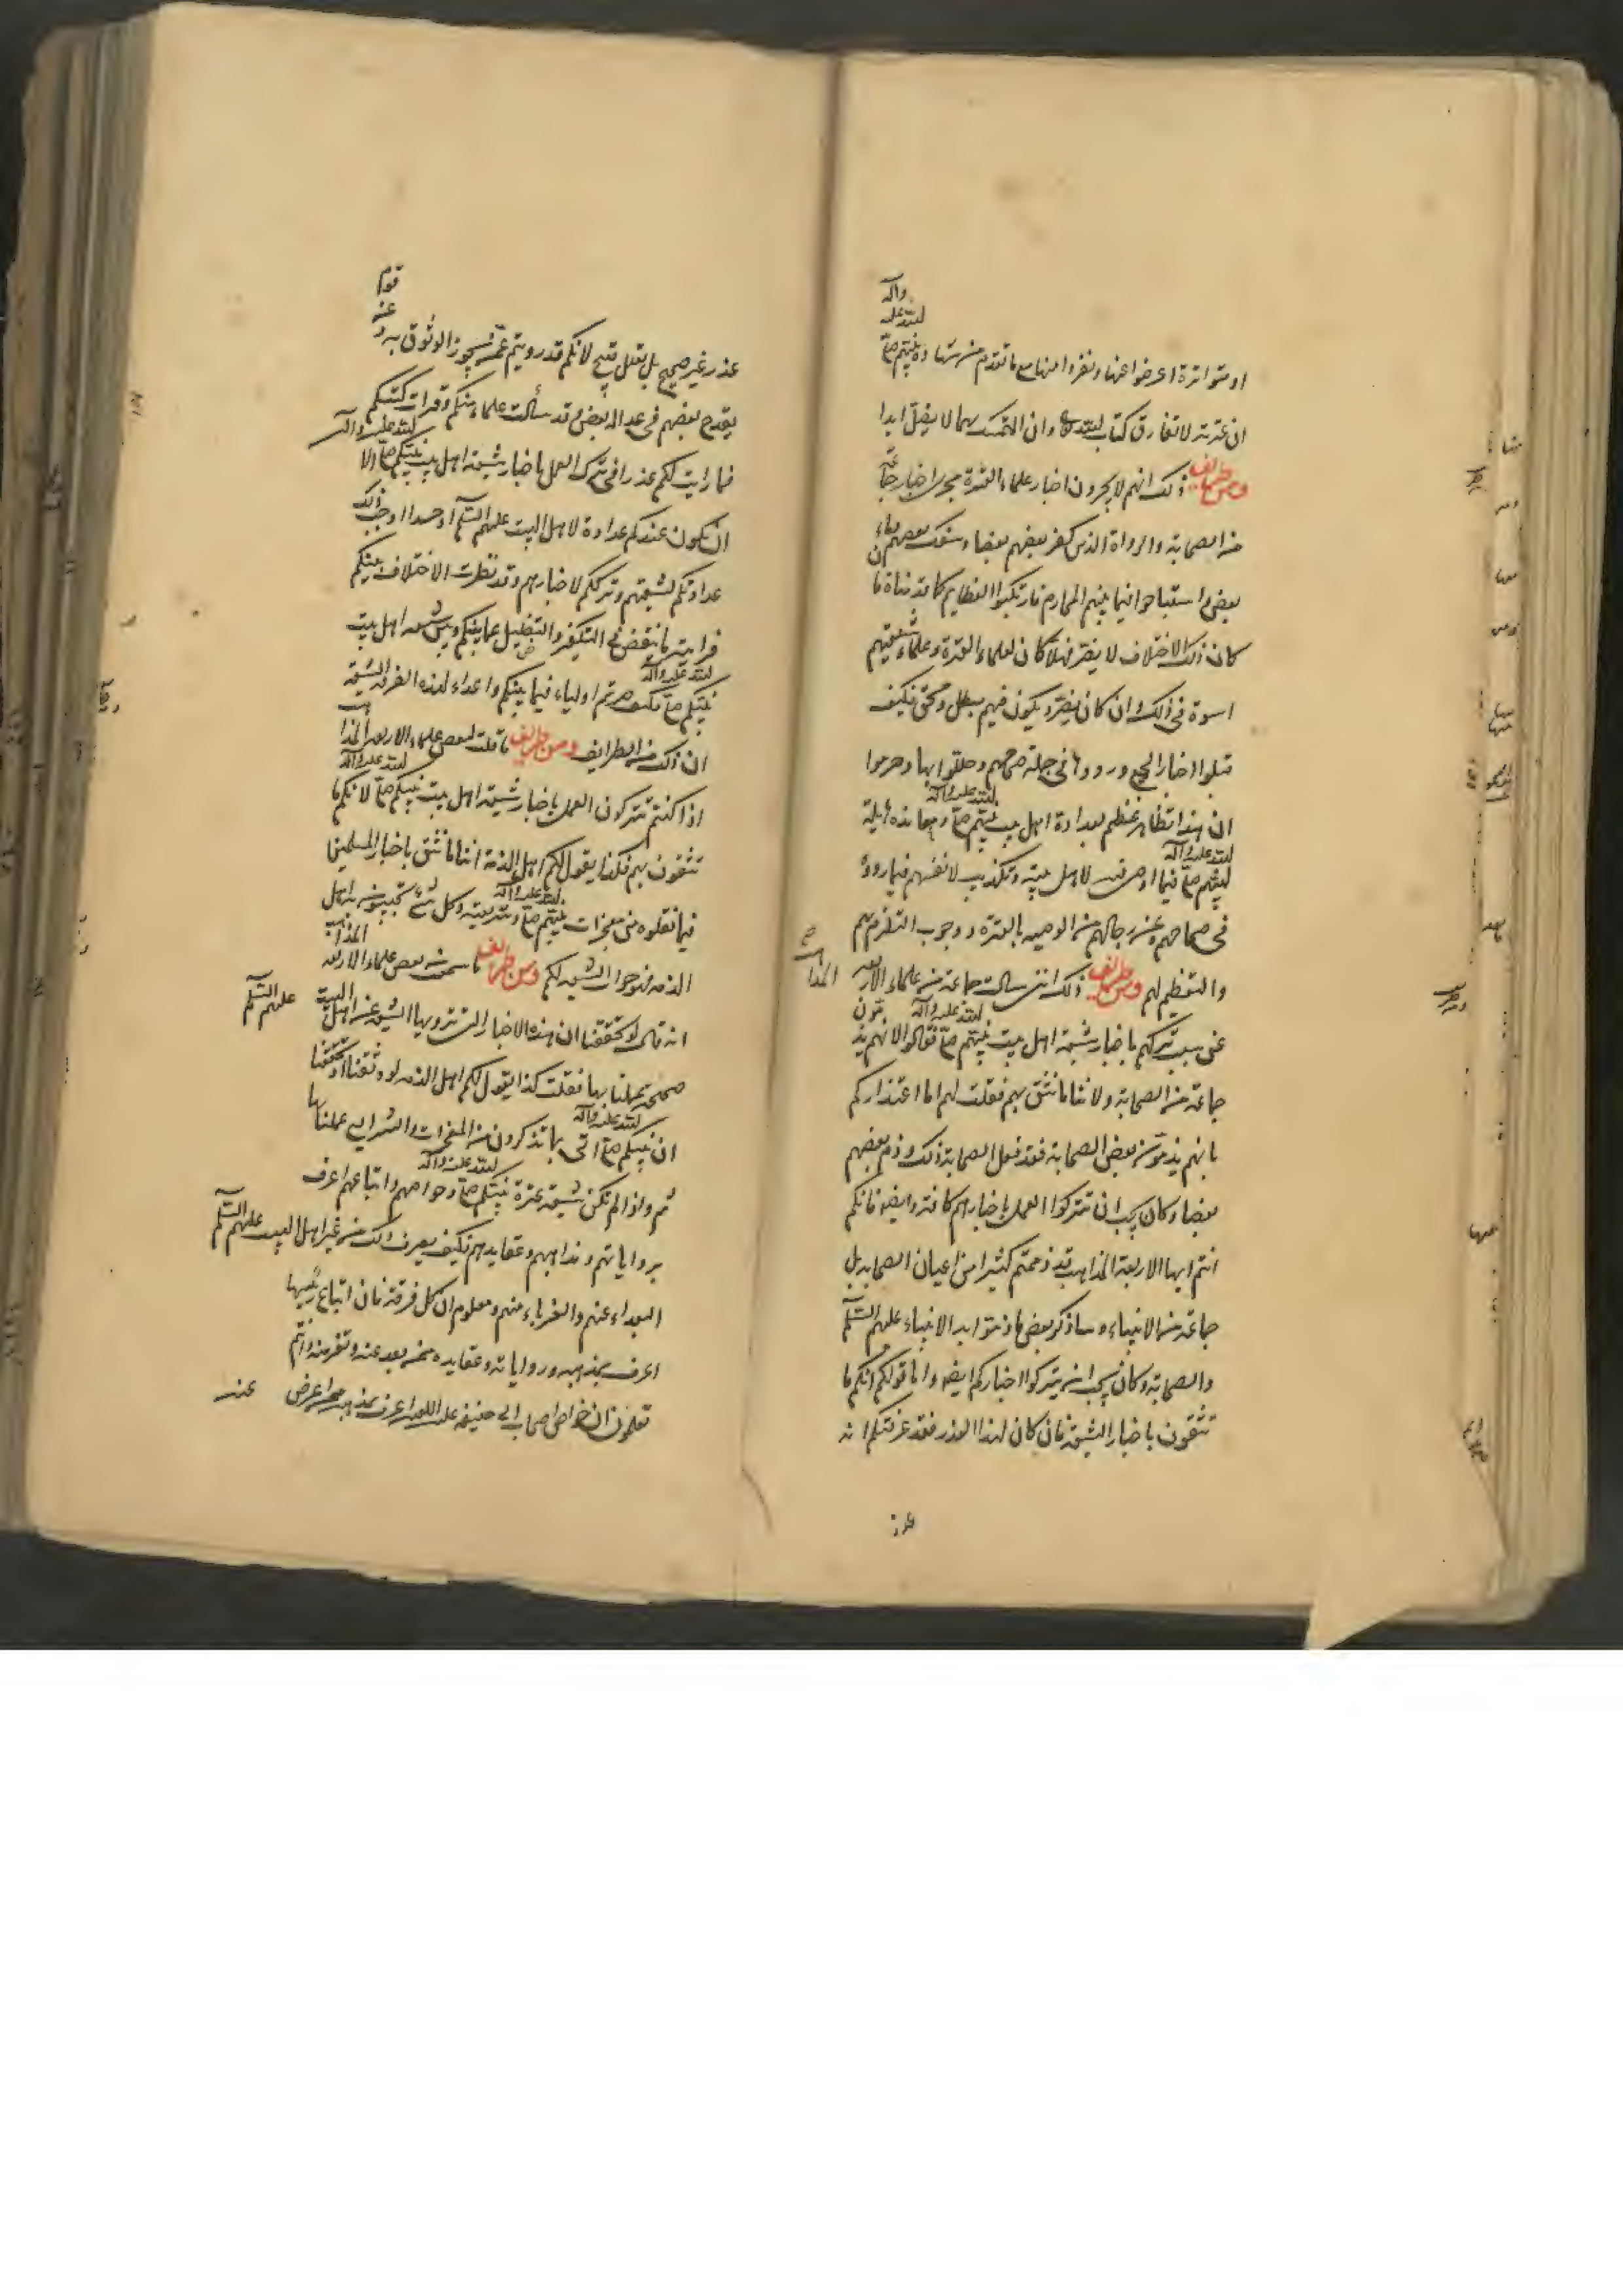 او متواترة اعرضوا عنها ونفروا منها مع ما تقدم من شهادة نبيهم صلى الله عليه وآله
ان عترته لا تفارق كتاب الله وان التمسك بهما لا يضل ابدا
ومن طرايف ذلك انهم لا يجرون اخبار علماء العترة مجرى اخبار جماعة
من الصحابة والرواة الذين كفر بعضهم بعضا وسفك بعضهم دماء
بعض واستباحوا فيما بينهم المحارم فارتكبوا العظايم كما قدمناه فا
كان ذلك الاختلاف لا يضر فهلا كان لعلماء العترة وعلماء شيعتهم
اسوة في ذلك وان كان يضر ويكون فيهم مبطل ومحق فكيف
قبلوا اخبار الجميع ورووها في جملة صحاحهم وحللوا بها وحرموا
ان هذا تظاهر عظيم بعداوة اهل بيت نبيهم صلى الله عليه وآله ومعاندة هايلة
لنبيهم صلى الله عليه وآله فيما اوصى فيه لاهل بيته وتكذيب لانفسهم فيما رووه
في صحاحهم وعن رجالهم من الوصية بالعترة ووجوب التلزم بهم
والتعظيم لهم ومن طرايف ذلك انني سالت جماعة من علماء الاربعة المذاهب
عن سبب تركهم باخبار شيعة اهل بيت نبيهم صلى الله عليه وآله فقالوا لانهم يذمون
جماعة من الصحابة ولاننا ما نثق بهم فقلت لهم اما اعتذاركم
بانهم يذمون بعض الصحابة فقد فعل الصحابة ذلك وذم بعضهم
بعضا وكان يجب ان تتركوا العمل باخبارهم كافة وايضا فانكم
انتم ايها الاربعة المذاهب قد ذممتم كثيرا من اعيان الصحابة بل
جماعة من الانبياء وساذكر بعض ما ذمتوا به الانبياء عليهم السلم
والصحابة وكان يجب ان يتركوا اخباركم ايضا واما قولكم انكم ما
تثقون باخبار الشيعة فان كان لهذا العذر فقد عرفتكم انه
عذر
عذر غير صحيح بل تعلل قبيح لانكم قد رويتم عمن يجوز الوثوق به وعنه قوم
يقدح بعضهم في عدالة بعض وقد سألت علماء منكم وقرات كتبكم
فما رايت لكم عذرا في ترك العمل باخبار شيعة اهل بيت نبيكم صلى الله عليه وآله الا
ان يكون عندكم عداوة لاهل البيت عليهم السلم او حسدا اوجب ذلك
عداوتكم لشيعتهم وترككم لاخبارهم وقد نظرت الاختلاف بينكم
فرايته ما ينقض في التكفير والتضليل عما بينكم وبين شيعة اهل بيت
نبيكم صلى الله عليه وآله فكيف صرتم اولياء فيما بينكم واعداء لهذه الفرقة الشيعة
ان ذلك من الطرايف ومن طرايف ما قلت لبعض علماء الاربعة المذاهب
اذا كنتم تتركون العمل باخبار شيعة اهل بيت نبيكم صلى الله عليه وآله لانكم ما
تثقون بهم فكذا يقول لكم اهل الذمة اننا ما نثق باخبار المسلمين
فيما نقلوه من معجزات نبيهم صلى الله عليه وآله وشريعته وكل شئ تجيبون به اهل
الذمة فهو جواب الشيعة لكم ومن طرايف ما سمعت من بعض علماء الاربعة المذاهب
انه قال لو تحققنا ان هذه الاخبار التي ترويها الشيعة عن اهل البيت عليهم السلم
صحيحة عملنا بها فقلت كذا يقول لكم اهل الذمة لو وثقنا او تحققنا
ان نبيكم صلى الله عليه وآله اتى بما تذكرون من المعجزات والشرايع عملنا بها
ثم واذا لم تكن شيعة عترة نبيكم صلى الله عليه وآله وخواصهم واتباعهم اعرف
برواياتهم ومذاهبهم وعقايدهم فكيف يعرف ذلك من غير اهل البيت عليهم السلم
البعداء عنهم والغرباء منهم ومعلوم ان كل فرقة فان اتباع رئيسها
اعرف بمذهبه ورواياته وعقايده ممن بعد عنه ونفر منه وانتم
تعلمون ان خواص اصحاب ابي حنيفة اعرف بمذهبه ممن اعرض عنه